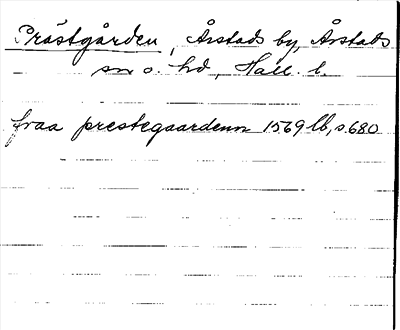 Prästgården, Årstads by, Årstads
sn o. hd, Hall. l.
fraa prestegaardenn 1569 lb, s. 680